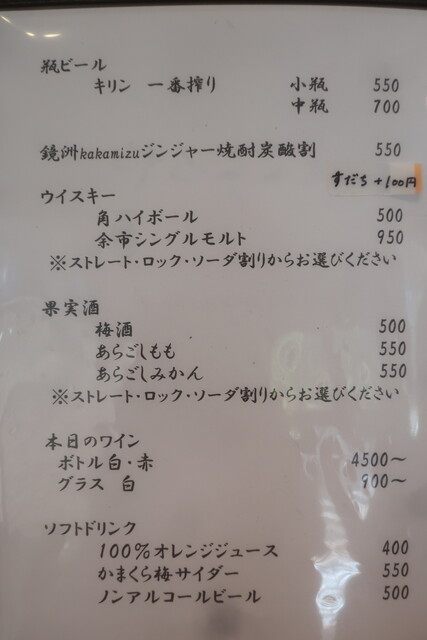 瓶ビール
キリン 一番搾り 小瓶 550
中瓶 700
鏡洲kakamizuジンジャー焼酎炭酸割 550
すだち +100円
ウイスキー
角ハイボール 500
余市シングルモルト 950
※ストレート・ロック・ソーダ割りからお選びください
果実酒
梅酒 500
あらごしもも 550
あらごしみかん 550
※ストレート・ロック・ソーダ割りからお選びください
本日のワイン
ボトル白・赤 4500～
グラス 白 900～
ソフトドリンク
100%オレンジジュース 400
かまくら梅サイダー 550
ノンアルコールビール 500